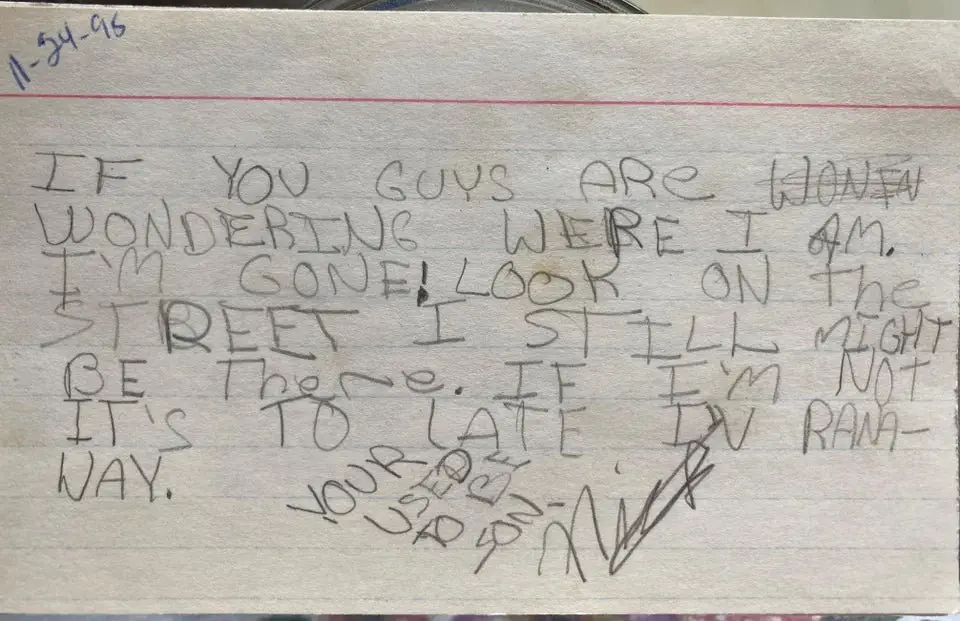 11-24-96
IF YOU GUYS ARe
WONDERING WERE I AM.
I'M GONE! LOOK ON The
STREET I STILL MIGHT
BE There. IF I'M NOT
IT'S TO LATE IV RANA-
WAY.
YOUR
USED
TO BE
SON-
Nick